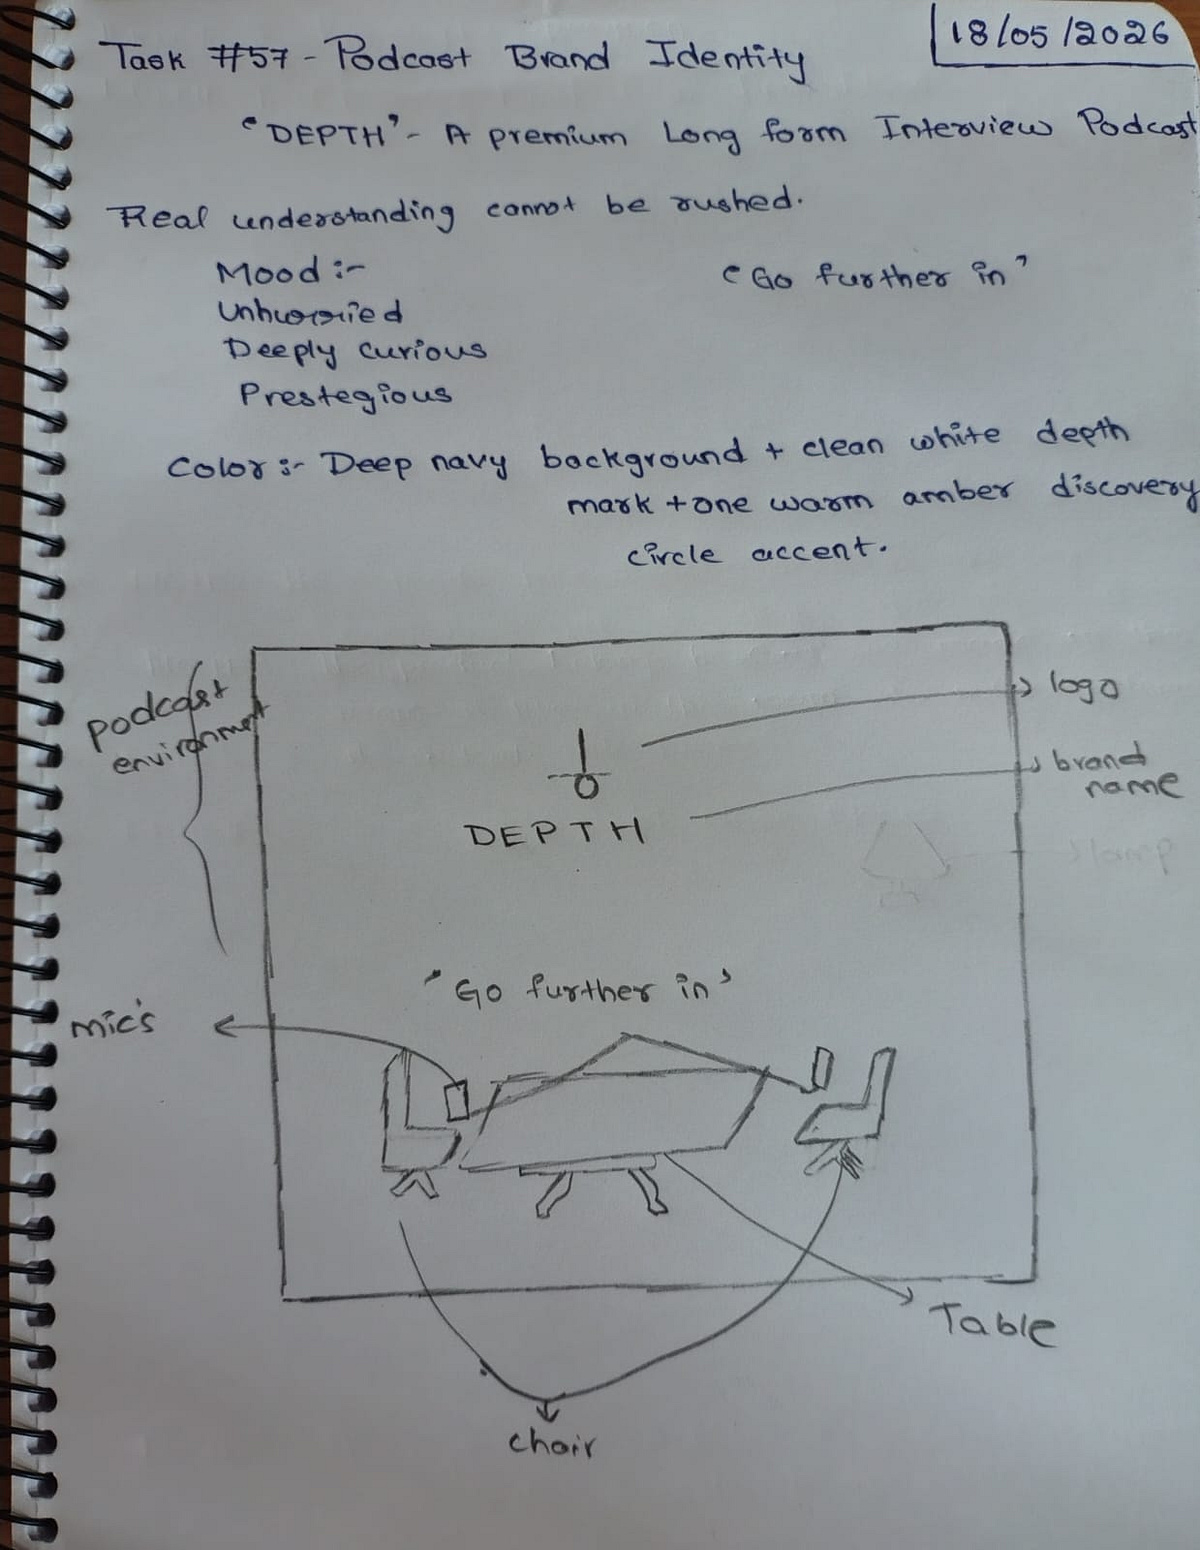 18/05/2026
Task #57 - Podcast Brand Identity
"DEPTH" - A premium Long form Interview Podcast
Real understanding cannot be rushed.
Mood :-
"Go further in"
Unhurried
Deeply curious
Prestegious
Color :- Deep navy background + clean white depth
mark + one warm amber discovery
circle accent.
podcast
environment
logo
brand
name
DEPTH
lamp
"Go further in"
mic's
Table
chair